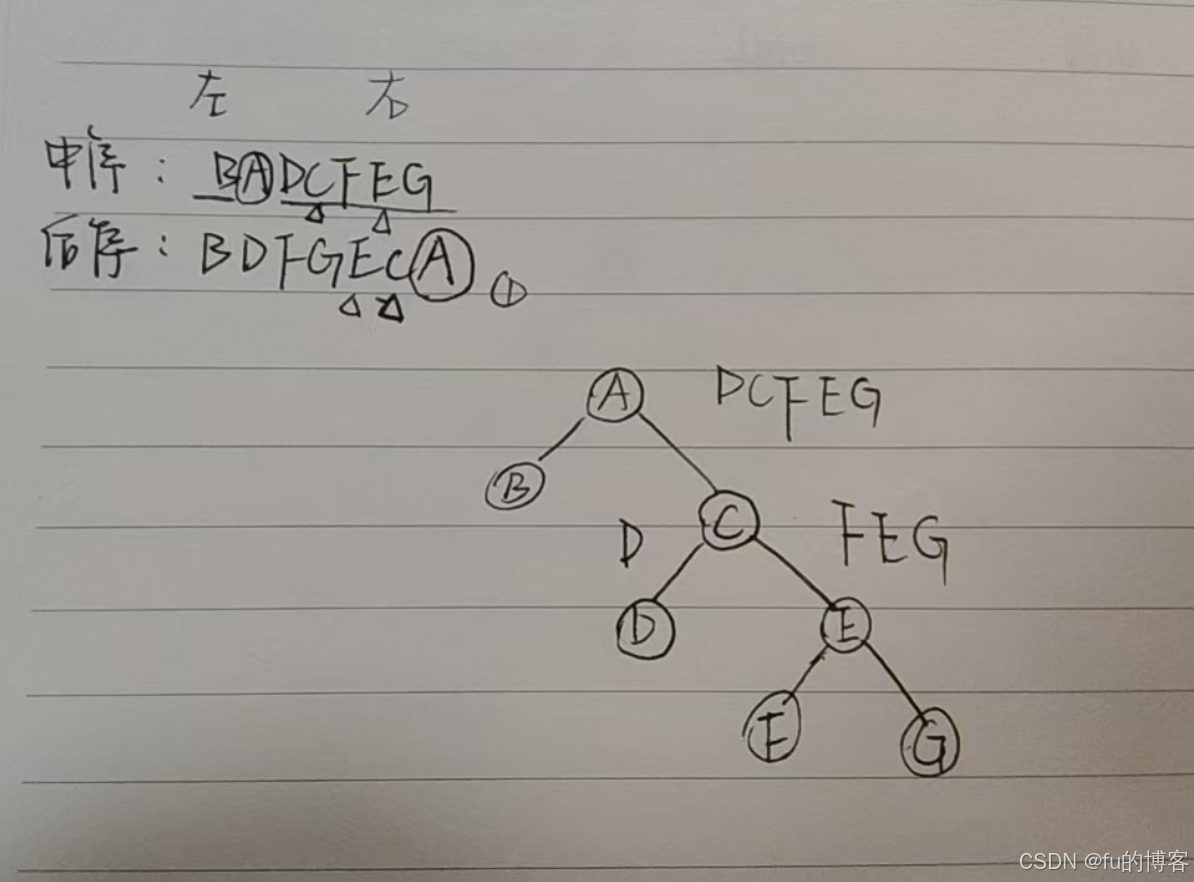 左 右
中序：BADCFEG
后序：BDFGECA ①
A DCFEG
B
D C FEG
D E
F G
CSDN @fu的博客